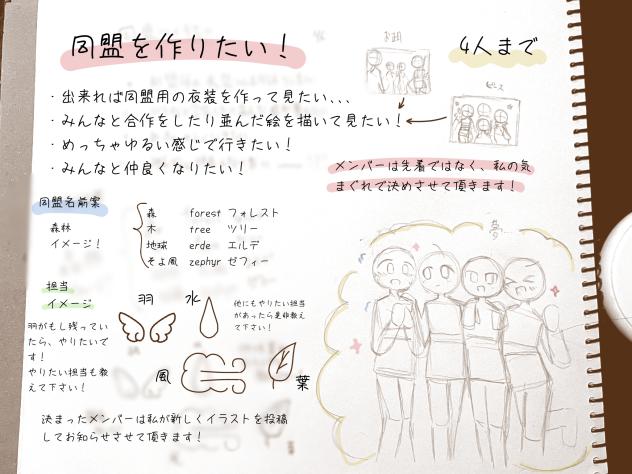 同盟を作りたい！
4人まで
・出来れば同盟用の衣装を作って見たい、、、
・みんなと合作をしたり並んだ絵を描いて見たい！
・めっちゃゆるい感じで行きたい！
・みんなと仲良くなりたい！
ピース
メンバーは先着ではなく、私の気
まぐれで決めさせて頂きます！
同盟名前案
森林
イメージ！
森 forest フォレスト
木 tree ツリー
地球 erde エルデ
そよ風 zephyr ゼフィー
担当
イメージ
羽がもし残ってい
たら、やりたいで
す！
やりたい担当も教
えて下さい！
羽
水
風
葉
他にもやりたい担当
があったら是非教え
て下さい！
夢…
決まったメンバーは私が新しくイラストを投稿
してお知らせさせて頂きます！